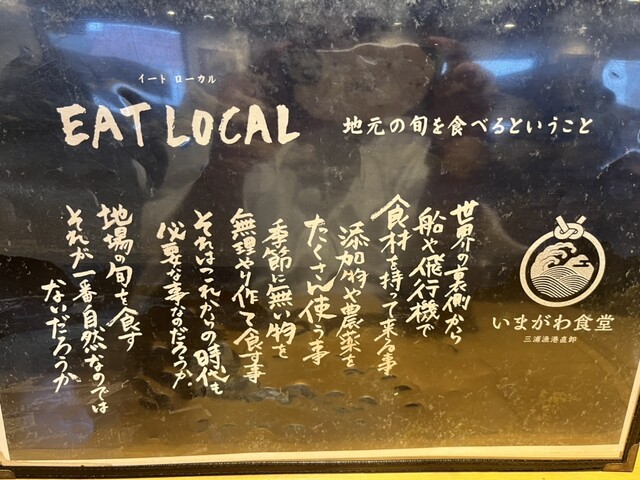 イート ローカル
EAT LOCAL
地元の旬を食べるということ
世界の裏側から
船や飛行機で
食材を持って来る事
添加物や農薬を
たくさん使う事
季節に無い物を
無理やり作って食す事
それはこれからの時代も
必要な事なのだろうか
地場の旬を食す
それが一番自然なのでは
ないだろうか
いまがわ食堂
三浦漁港直卸